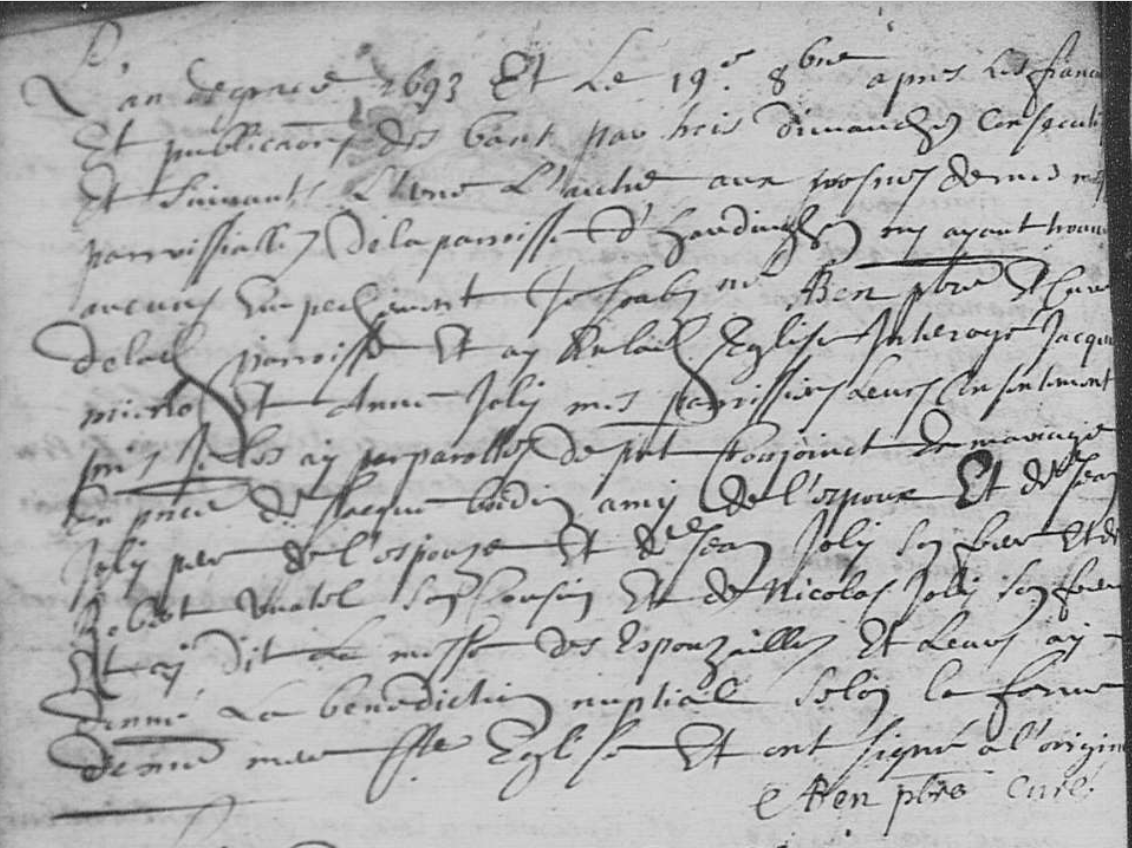 L'an de grace 1693 Et Le 19e 8bre apres Les fianc
Et publications des bans par trois dimanches Consecuti
Et suivants L'une L'autre aux prosnes de nos me
parroissialles De la paroisse d'hardinghen ny ayant trouv
aucuns Empechement Je soub ne pbre Et Cure
de lad parroisse Et ay En lad Eglise Interogé Jacqu
Et Anne Joly mes parroissiens Leurs Consentement
pris Je les ay par parolles de pnt Conjoinct En mariage
En pnce de Jacque bodin amy de l'espoux Et de Jean
Joly pere de l'espouze Et de Jean Joly son frere Et de
Robert son Cousin Et de Nicolas Joly son frere
Et ay Dit La messe des Espouzailles Et Leurs ay
donné La benediction nuptial Selon la forme
de nre mere ste Eglise Et ont signé a l'origin
pbre Curé